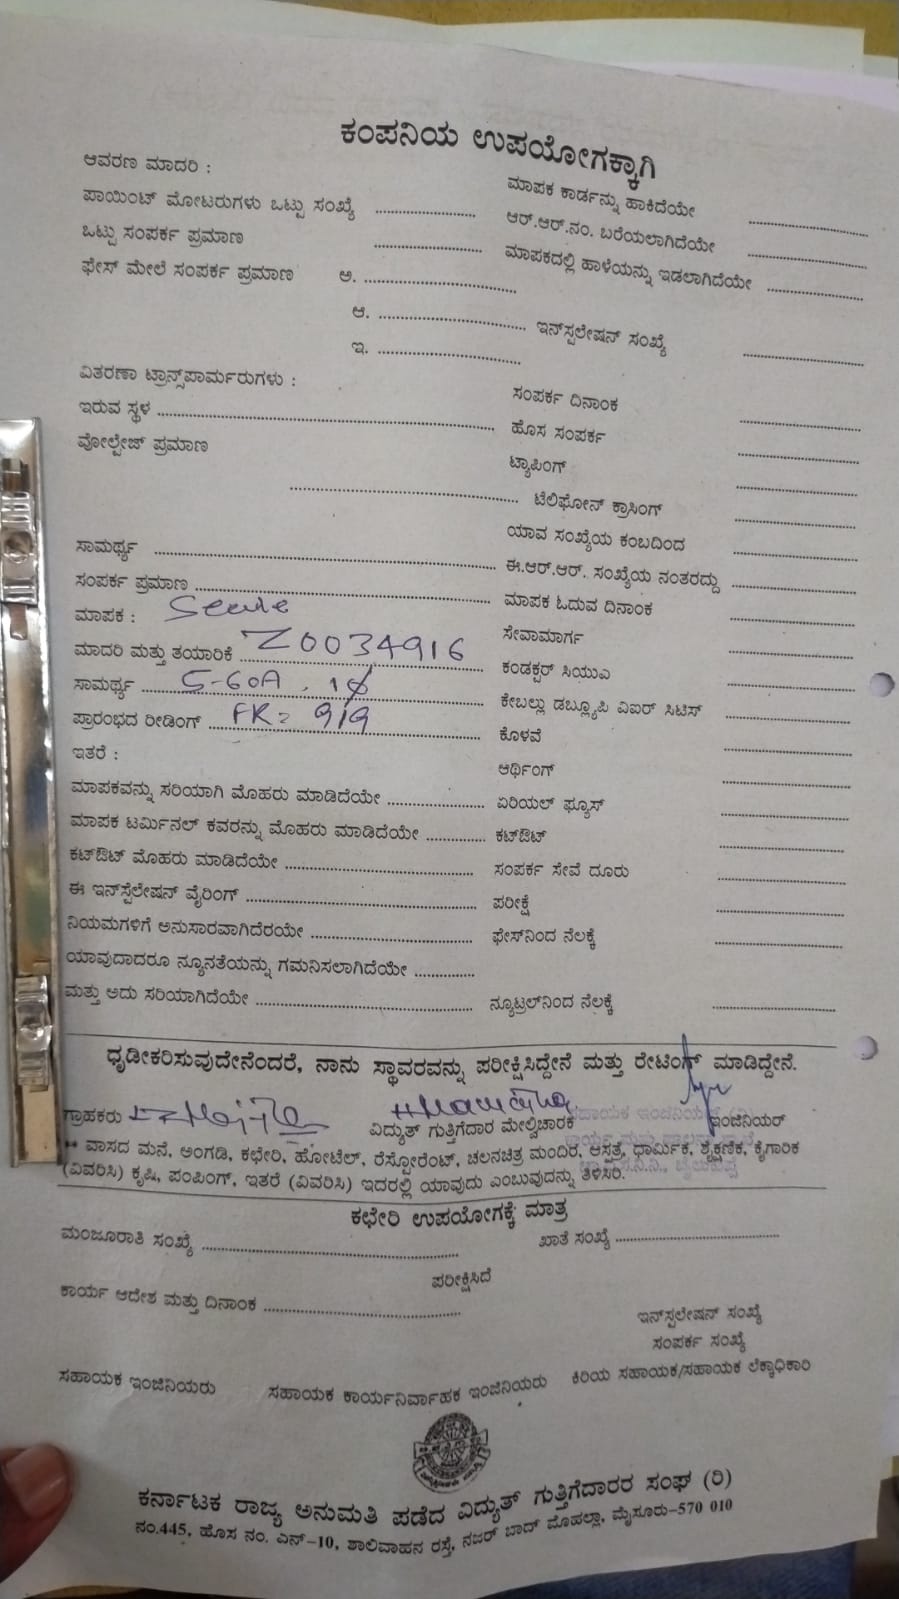 ಕಂಪನಿಯ ಉಪಯೋಗಕ್ಕಾಗಿ
ಆವರಣ ಮಾದರಿ :
ಮಾಪಕ ಕಾರ್ಡನ್ನು ಹಾಕಿದೆಯೇ
ಪಾಯಿಂಟ್ ಮೋಟರುಗಳು ಒಟ್ಟು ಸಂಖ್ಯೆ
ಆರ್.ಆರ್.ನಂ. ಬರೆಯಲಾಗಿದೆಯೇ
ಒಟ್ಟು ಸಂಪರ್ಕ ಪ್ರಮಾಣ
ಮಾಪಕದಲ್ಲಿ ಹಾಳೆಯನ್ನು ಇಡಲಾಗಿದೆಯೇ
ಫೇಸ್ ಮೇಲೆ ಸಂಪರ್ಕ ಪ್ರಮಾಣ ಅ.
ಆ. ಇನ್‌ಸ್ಪಲೇಷನ್ ಸಂಖ್ಯೆ
ಇ.
ವಿತರಣಾ ಟ್ರಾನ್ಸ್‌ಪಾರ್ಮರುಗಳು :
ಸಂಪರ್ಕ ದಿನಾಂಕ
ಇರುವ ಸ್ಥಳ
ಹೊಸ ಸಂಪರ್ಕ
ವೋಲ್ಟೇಜ್ ಪ್ರಮಾಣ
ಟ್ಯಾಪಿಂಗ್
ಟೆಲಿಫೋನ್ ಕ್ರಾಸಿಂಗ್
ಯಾವ ಸಂಖ್ಯೆಯ ಕಂಬದಿಂದ
ಸಾಮರ್ಥ್ಯ
ಈ.ಆರ್.ಆರ್. ಸಂಖ್ಯೆಯ ನಂತರದ್ದು
ಸಂಪರ್ಕ ಪ್ರಮಾಣ
ಮಾಪಕ ಓದುವ ದಿನಾಂಕ
ಮಾಪಕ :
ಸೇವಾಮಾರ್ಗ
ಮಾದರಿ ಮತ್ತು ತಯಾರಿಕೆ Z0034916
ಕಂಡಕ್ಟರ್ ಸಿಯುಎ
ಸಾಮರ್ಥ್ಯ 5-60A, 1ϕ
ಕೇಬಲ್ಲು ಡಬ್ಲ್ಯೂಪಿ ವಿಐರ್ ಸಿಟಿಸ್
ಪ್ರಾರಂಭದ ರೀಡಿಂಗ್ FR = 919
ಕೊಳವೆ
ಇತರೆ :
ಆರ್ಥಿಂಗ್
ಮಾಪಕವನ್ನು ಸರಿಯಾಗಿ ಮೊಹರು ಮಾಡಿದೆಯೇ
ಏರಿಯಲ್ ಫ್ಯೂಸ್
ಮಾಪಕ ಟರ್ಮಿನಲ್ ಕವರನ್ನು ಮೊಹರು ಮಾಡಿದೆಯೇ
ಕಟ್‌ಔಟ್
ಕಟ್‌ಔಟ್ ಮೊಹರು ಮಾಡಿದೆಯೇ
ಸಂಪರ್ಕ ಸೇವೆ ದೂರು
ಈ ಇನ್‌ಸ್ಟೆಲೇಷನ್ ವೈರಿಂಗ್
ಪರೀಕ್ಷೆ
ನಿಯಮಗಳಿಗೆ ಅನುಸಾರವಾಗಿದೆರಯೇ
ಫೇಸ್‌ನಿಂದ ನೆಲಕ್ಕೆ
ಯಾವುದಾದರೂ ನ್ಯೂನತೆಯನ್ನು ಗಮನಿಸಲಾಗಿದೆಯೇ
ಮತ್ತು ಅದು ಸರಿಯಾಗಿದೆಯೇ
ನ್ಯೂಟ್ರಲ್‌ನಿಂದ ನೆಲಕ್ಕೆ
ಧೃಡೀಕರಿಸುವುದೇನೆಂದರೆ, ನಾನು ಸ್ಥಾವರವನ್ನು ಪರೀಕ್ಷಿಸಿದ್ದೇನೆ ಮತ್ತು ರೇಟಿಂಗ್ ಮಾಡಿದ್ದೇನೆ.
ಗ್ರಾಹಕರು ವಿದ್ಯುತ್ ಗುತ್ತಿಗೆದಾರ ಮೇಲ್ವಿಚಾರಕ ಇಂಜಿನಿಯರ್
** ವಾಸದ ಮನೆ, ಅಂಗಡಿ, ಕಛೇರಿ, ಹೋಟೆಲ್, ರೆಸ್ಟೋರೆಂಟ್, ಚಲನಚಿತ್ರ ಮಂದಿರ, ಆಸ್ಪತ್ರೆ, ಧಾರ್ಮಿಕ, ಶೈಕ್ಷಣಿಕ, ಕೈಗಾರಿಕ
(ವಿವರಿಸಿ) ಕೃಷಿ, ಪಂಪಿಂಗ್, ಇತರೆ (ವಿವರಿಸಿ) ಇದರಲ್ಲಿ ಯಾವುದು ಎಂಬುವುದನ್ನು ತಿಳಿಸಿರಿ.
ಕಛೇರಿ ಉಪಯೋಗಕ್ಕೆ ಮಾತ್ರ
ಮಂಜೂರಾತಿ ಸಂಖ್ಯೆ
ಖಾತೆ ಸಂಖ್ಯೆ
ಪರೀಕ್ಷಿಸಿದೆ
ಕಾರ್ಯ ಆದೇಶ ಮತ್ತು ದಿನಾಂಕ
ಇನ್‌ಸ್ಪಲೇಷನ್ ಸಂಖ್ಯೆ
ಸಂಪರ್ಕ ಸಂಖ್ಯೆ
ಸಹಾಯಕ ಇಂಜಿನಿಯರು ಸಹಾಯಕ ಕಾರ್ಯನಿರ್ವಾಹಕ ಇಂಜಿನಿಯರು ಕಿರಿಯ ಸಹಾಯಕ/ಸಹಾಯಕ ಲೆಕ್ಕಾಧಿಕಾರಿ
ಕರ್ನಾಟಕ ರಾಜ್ಯ ಅನುಮತಿ ಪಡೆದ ವಿದ್ಯುತ್ ಗುತ್ತಿಗೆದಾರರ ಸಂಘ (ರಿ)
ನಂ.445, ಹೊಸ ನಂ. ಎನ್-10, ಶಾಲಿವಾಹನ ರಸ್ತೆ, ನಜರ್ ಬಾದ್ ಮೊಹಲ್ಲಾ, ಮೈಸೂರು-570 010